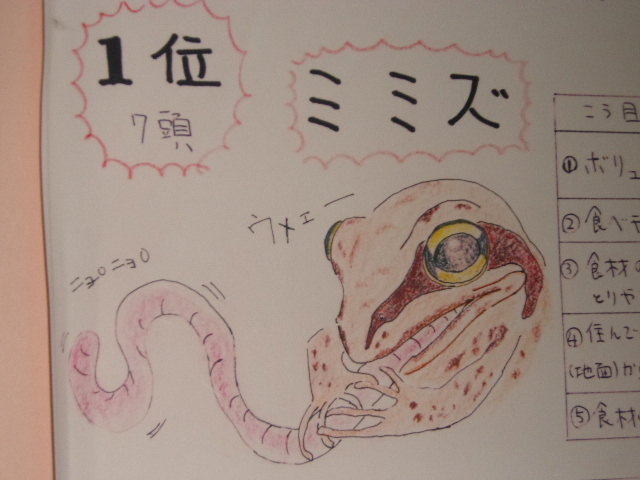 1位
7頭
ミミズ
ウメェー
ニョロニョロ
こう目
①ボリュ
②食べテ
③食材の
とりや
④住んで
(地面)か
⑤食材